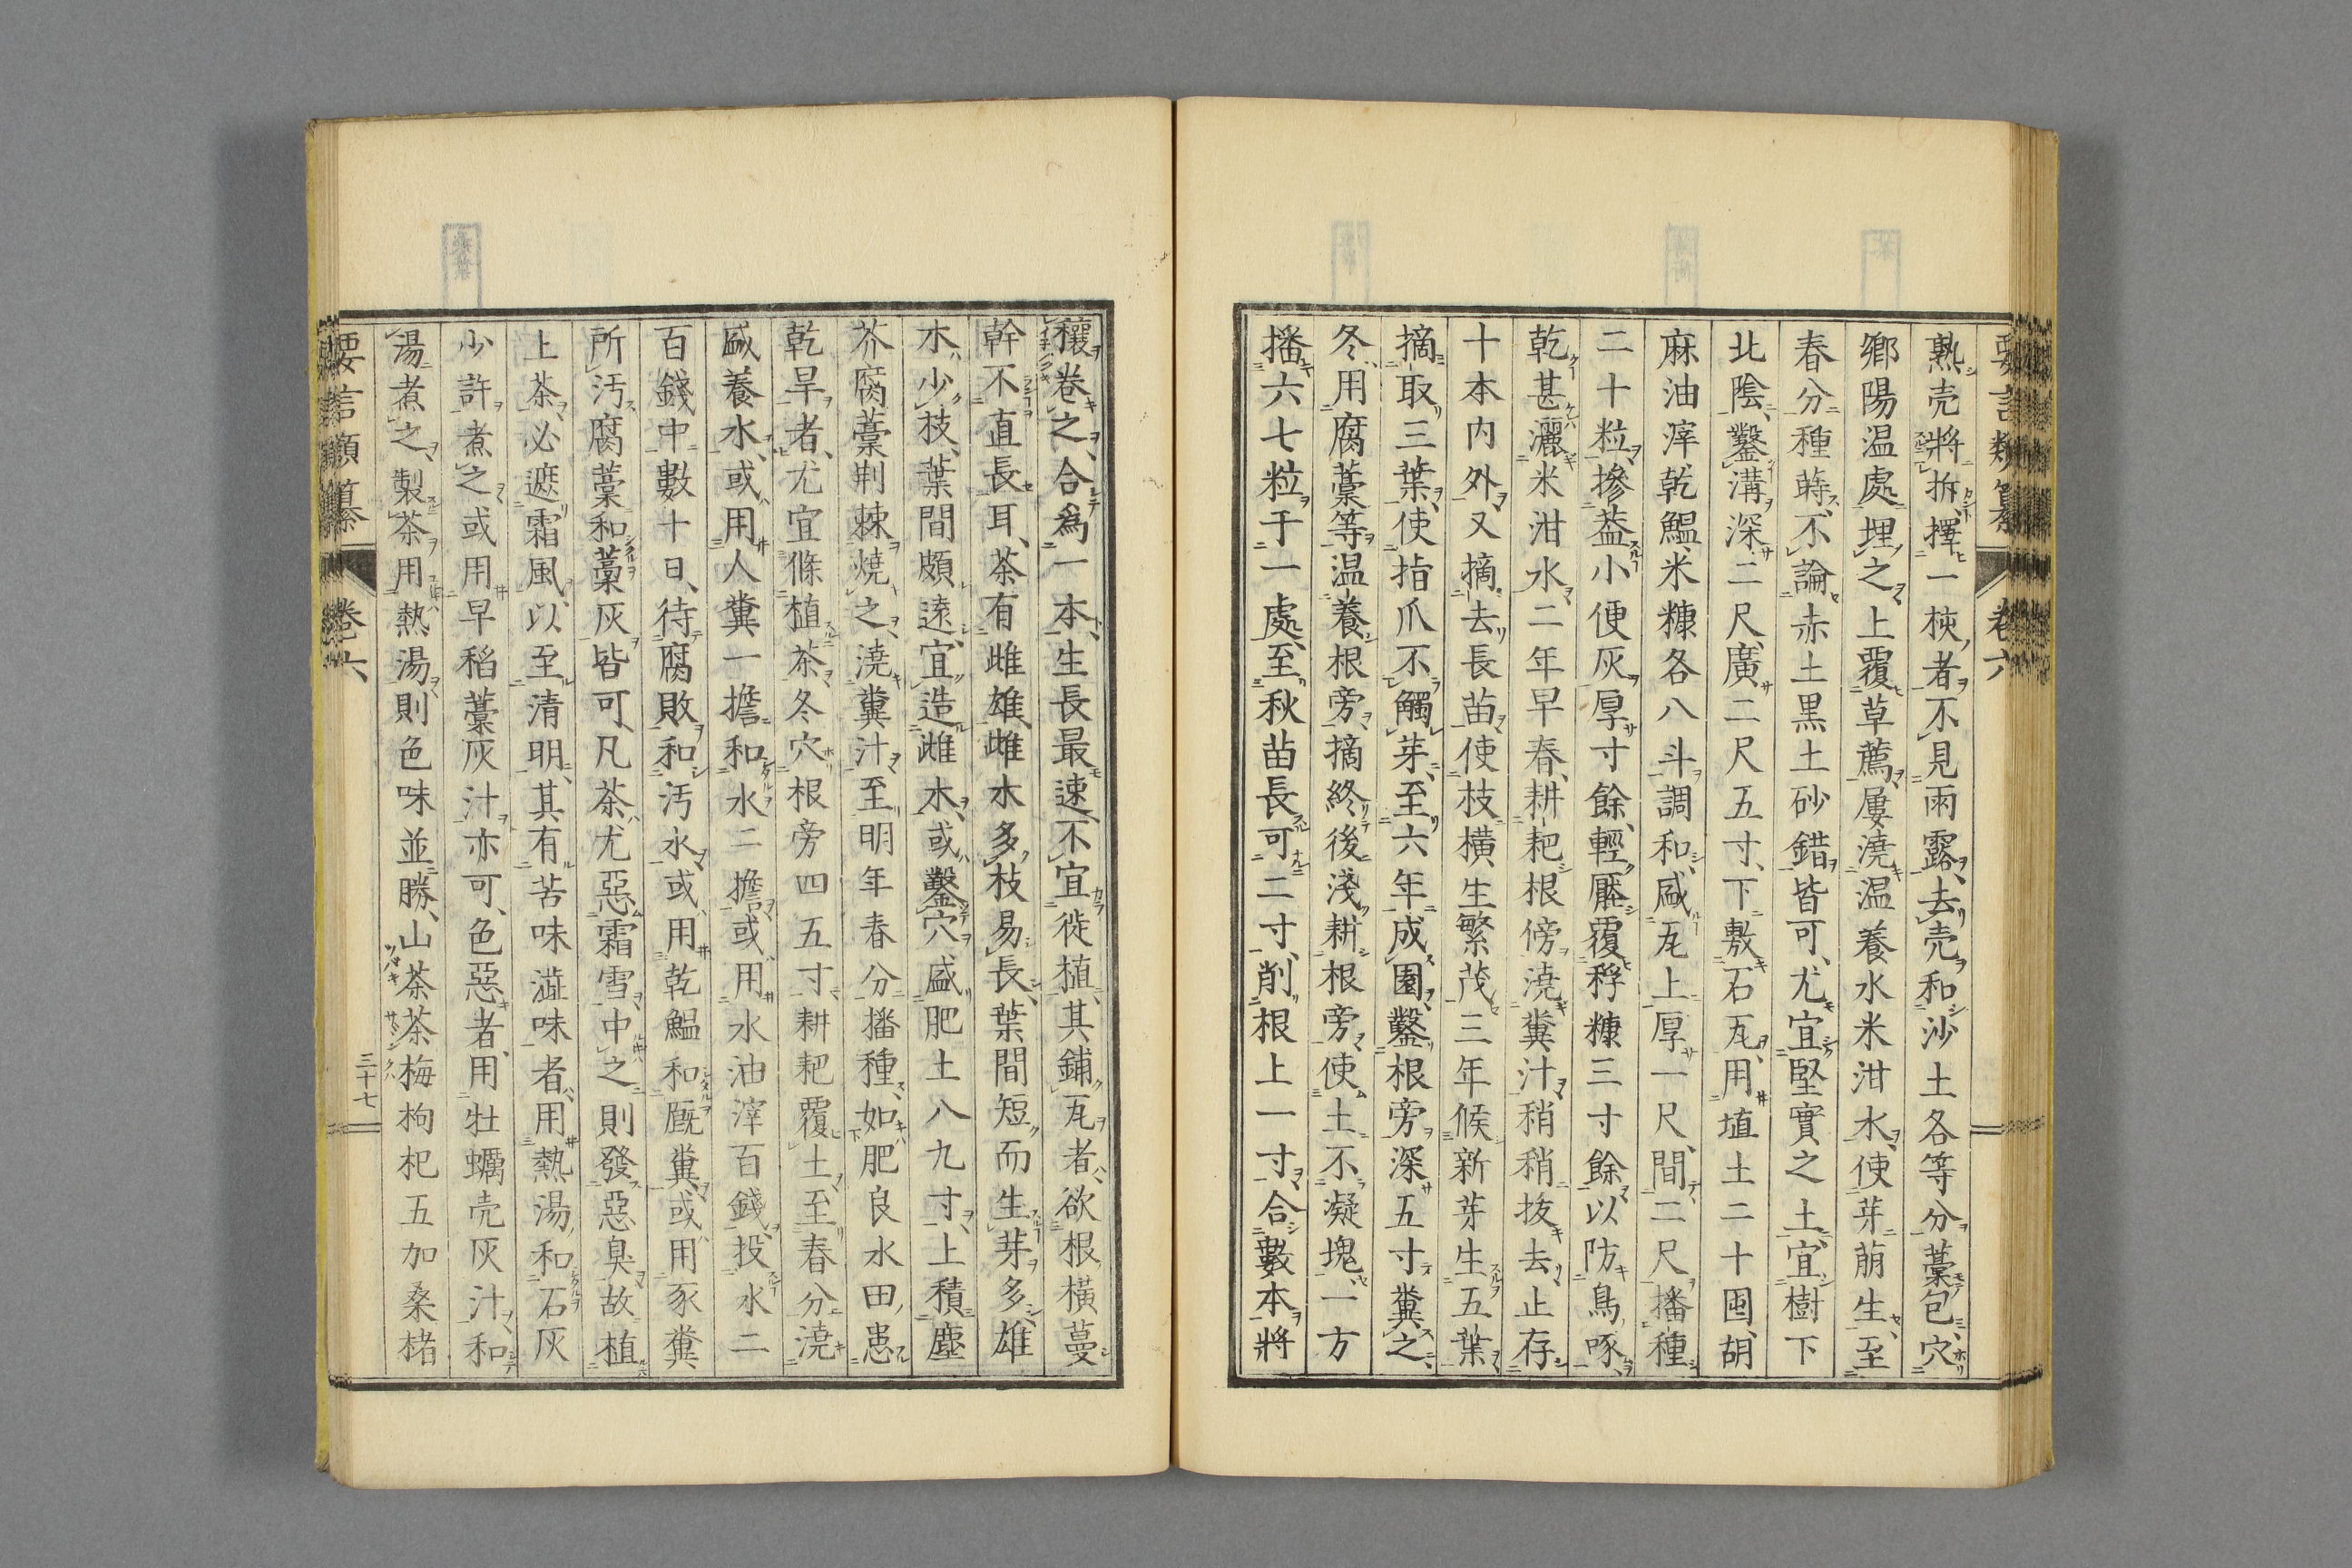 熟壳將拆、擇一梜者不見雨露、去壳和沙土各等分藁包、穴
鄉陽温處埋之上覆草薦、屢澆温養水米泔水、使芽萠生、至
春分種蒔、不論赤土黒土砂錯皆可、尤宜堅實之土、宜樹下
北陰、鑿溝深二尺、廣二尺五寸、下敷石瓦、用埴土二十囤、胡
麻油滓乾鰮米糠各八斗調和、盛瓦上厚一尺、間二尺播種
二十粒、摻葢小便灰厚寸餘、輕壓覆稃糠三寸餘以防鳥啄、
乾甚灑米泔水二年早春、耕耙根傍澆糞汁稍稍抜去、止存
十本内外、又摘去長苗、使枝橫生繁茂三年候新芽生五葉、
摘取三葉、使指爪不觸芽、至六年成園、鑿根旁深五寸糞之、
冬用腐藁等温養根旁、摘終後淺耕根旁、使土不凝塊、一方
播六七粒于一處、至秋苗長可二寸、削根上一寸、合數本將
穰卷之、合爲一本、生長最速、不宜徙植、其鋪瓦者、欲根橫蔓
幹不直長耳、茶有雌雄、雌木多枝易長、葉間短而生芽多、雄
木少枝、葉間頗遠、宜造雌木、或鑿穴、盛肥土八九寸、上積塵
芥腐藁荆棘燒之、澆糞汁、至明年春分播種、如肥良水田、患
乾旱者、尤宜條植茶、冬穴根旁四五寸耕耙覆土、至春分澆
盛養水、或用人糞一擔和水二擔、或用水油滓百錢、投水二
百錢中數十日、待腐敗和汚水、或用乾鰮和厩糞、或用豕糞、
所汚腐藁和藁灰皆可、凡茶尤惡霜雪、中之則發惡臭、故植
上茶、必遮霜風、以至清明、其有苦味澁味者、用熱湯和石灰
少許煮之、或用早稻藁灰汁亦可、色惡者、用牡蠣壳灰汁、和
湯煮之、製茶用熱湯、則色味並勝、山茶茶梅枸杞五加桑楮
要言類纂 卷六
三十七